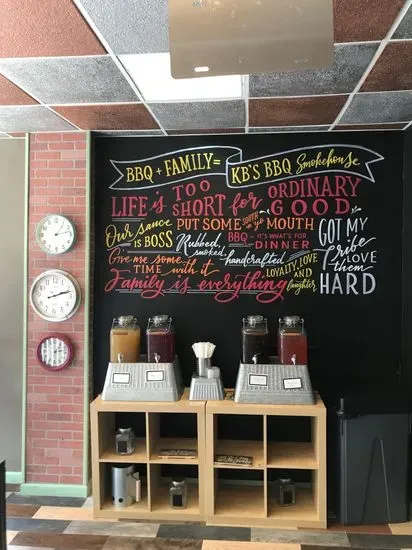 BBQ + FAMILY = KB'S BBQ Smokehouse
LIFE is TOO SHORT for ORDINARY GOOD.
Our sauce is BOSS
PUT SOME SOUTH in yo MOUTH
Rubbed, smoked, handcrafted
BBQ - IT'S WHAT'S FOR DINNER
GOT MY Ribs
LOVE them LOVE HARD
Give me some TIME with it
Family is everything
LOYALTY, LOVE AND laughter